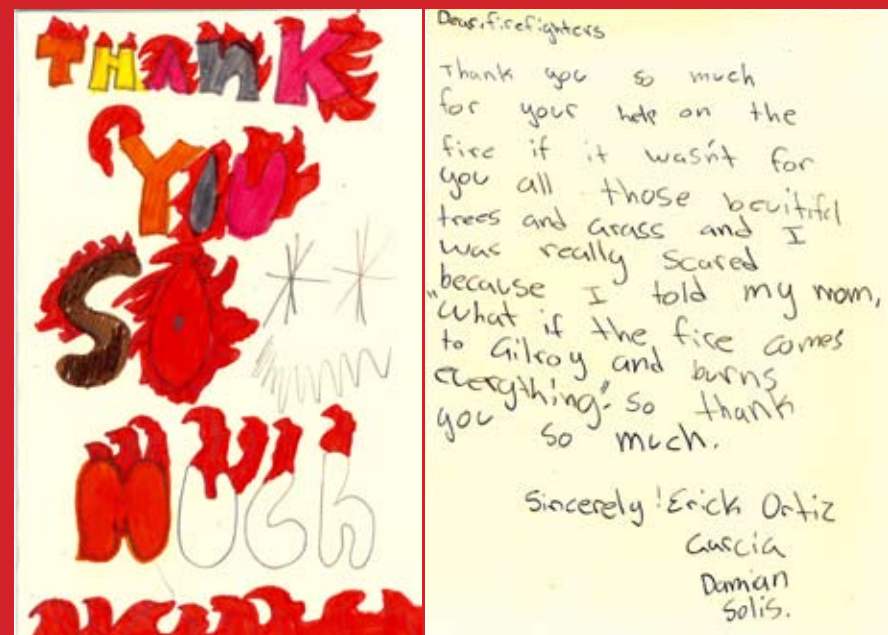 THANK
YOU
SO
MUch
Dear, firefighters
Thank you so much
for your help on the
fire if it wasn't for
you all those beuitifel
trees and Grass and I
was really Scared
because I told my mom,
"What if the fire comes
to Gilroy and burns
everything". So thank
you so much.
Sincerely! Erick Ortiz
Garcia
Damian
Solis.